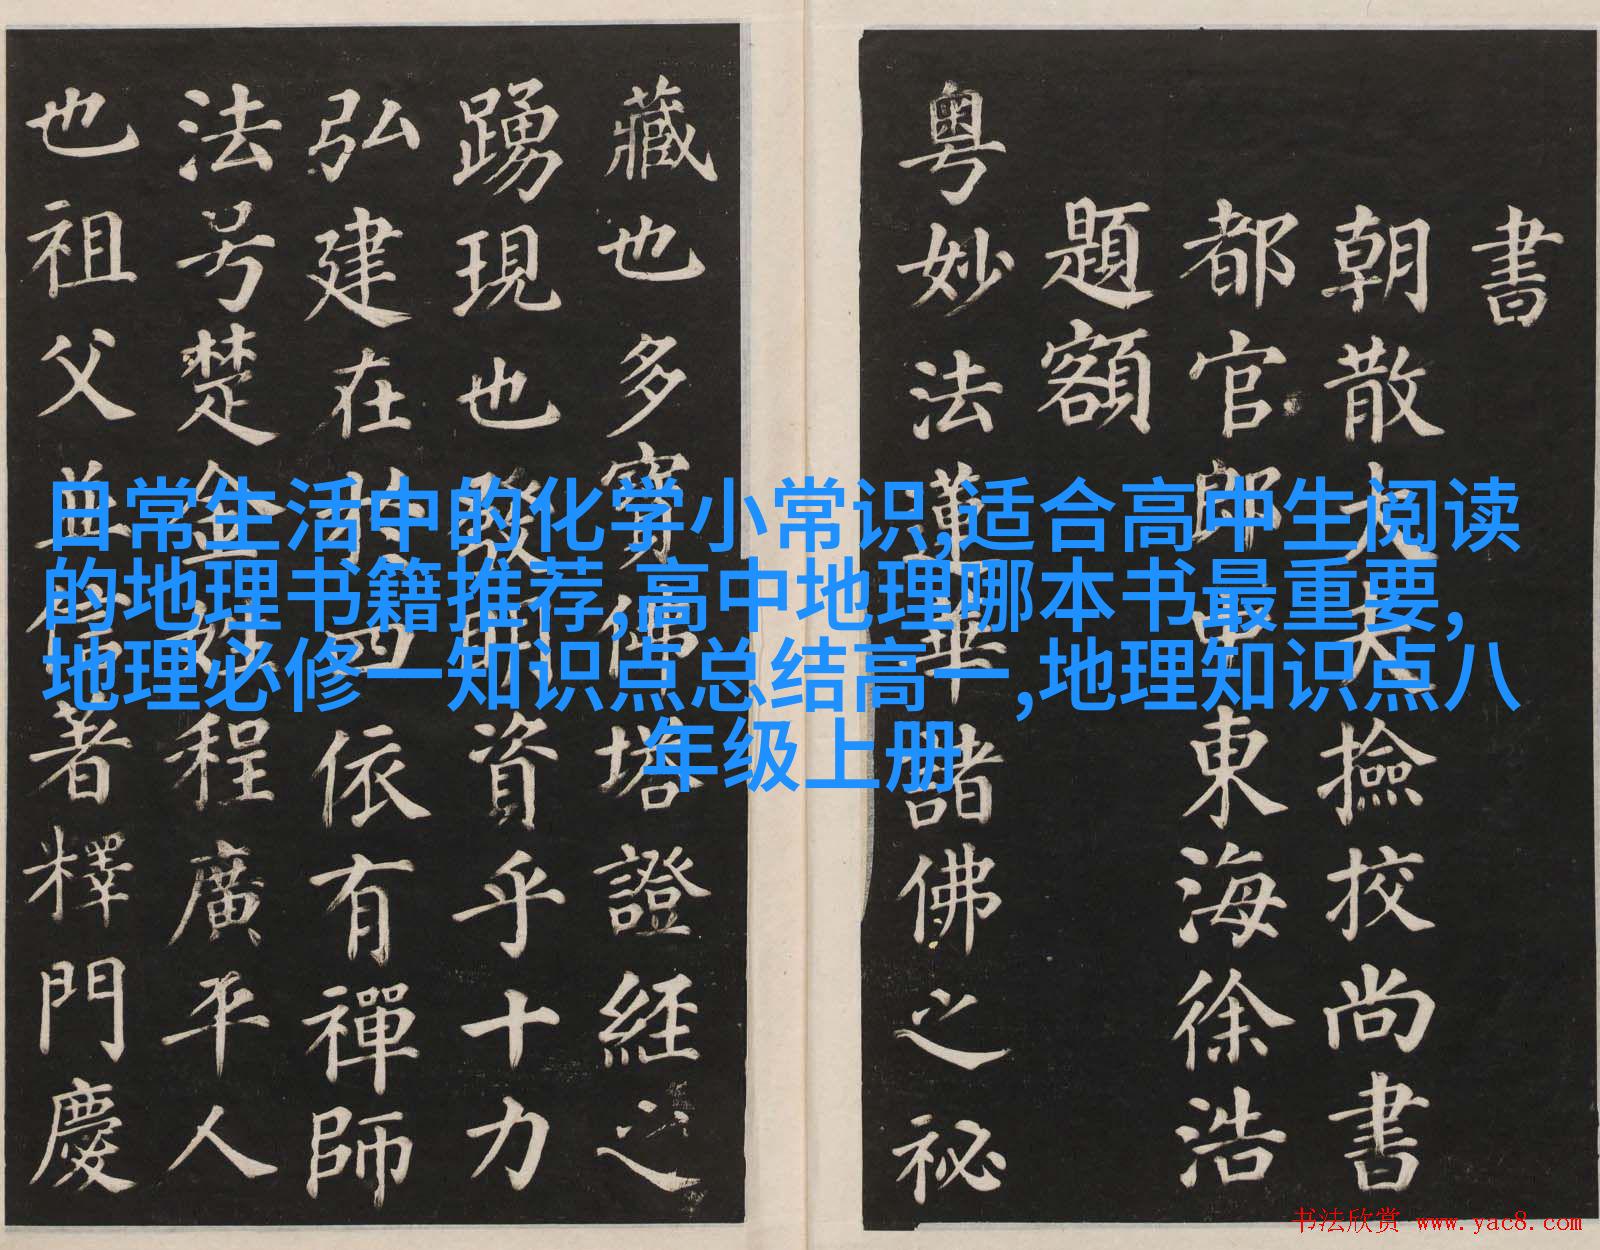 書
朝散大夫撿校尚書
都官郎中東海徐浩
題額
粤妙法蓮華諸佛之祕
藏也多寳佛塔證經之
踴現也發明資乎十力
弘建在於四依有禪師
法号楚金姓程廣平人
也祖父並信著釋門慶
日常生活中的化学小常识,适合高中生阅读
的地理书籍推荐,高中地理哪本书最重要,
地理必修一知识点总结高一,地理知识点八
年级上册
书法欣赏 www.yac8.com